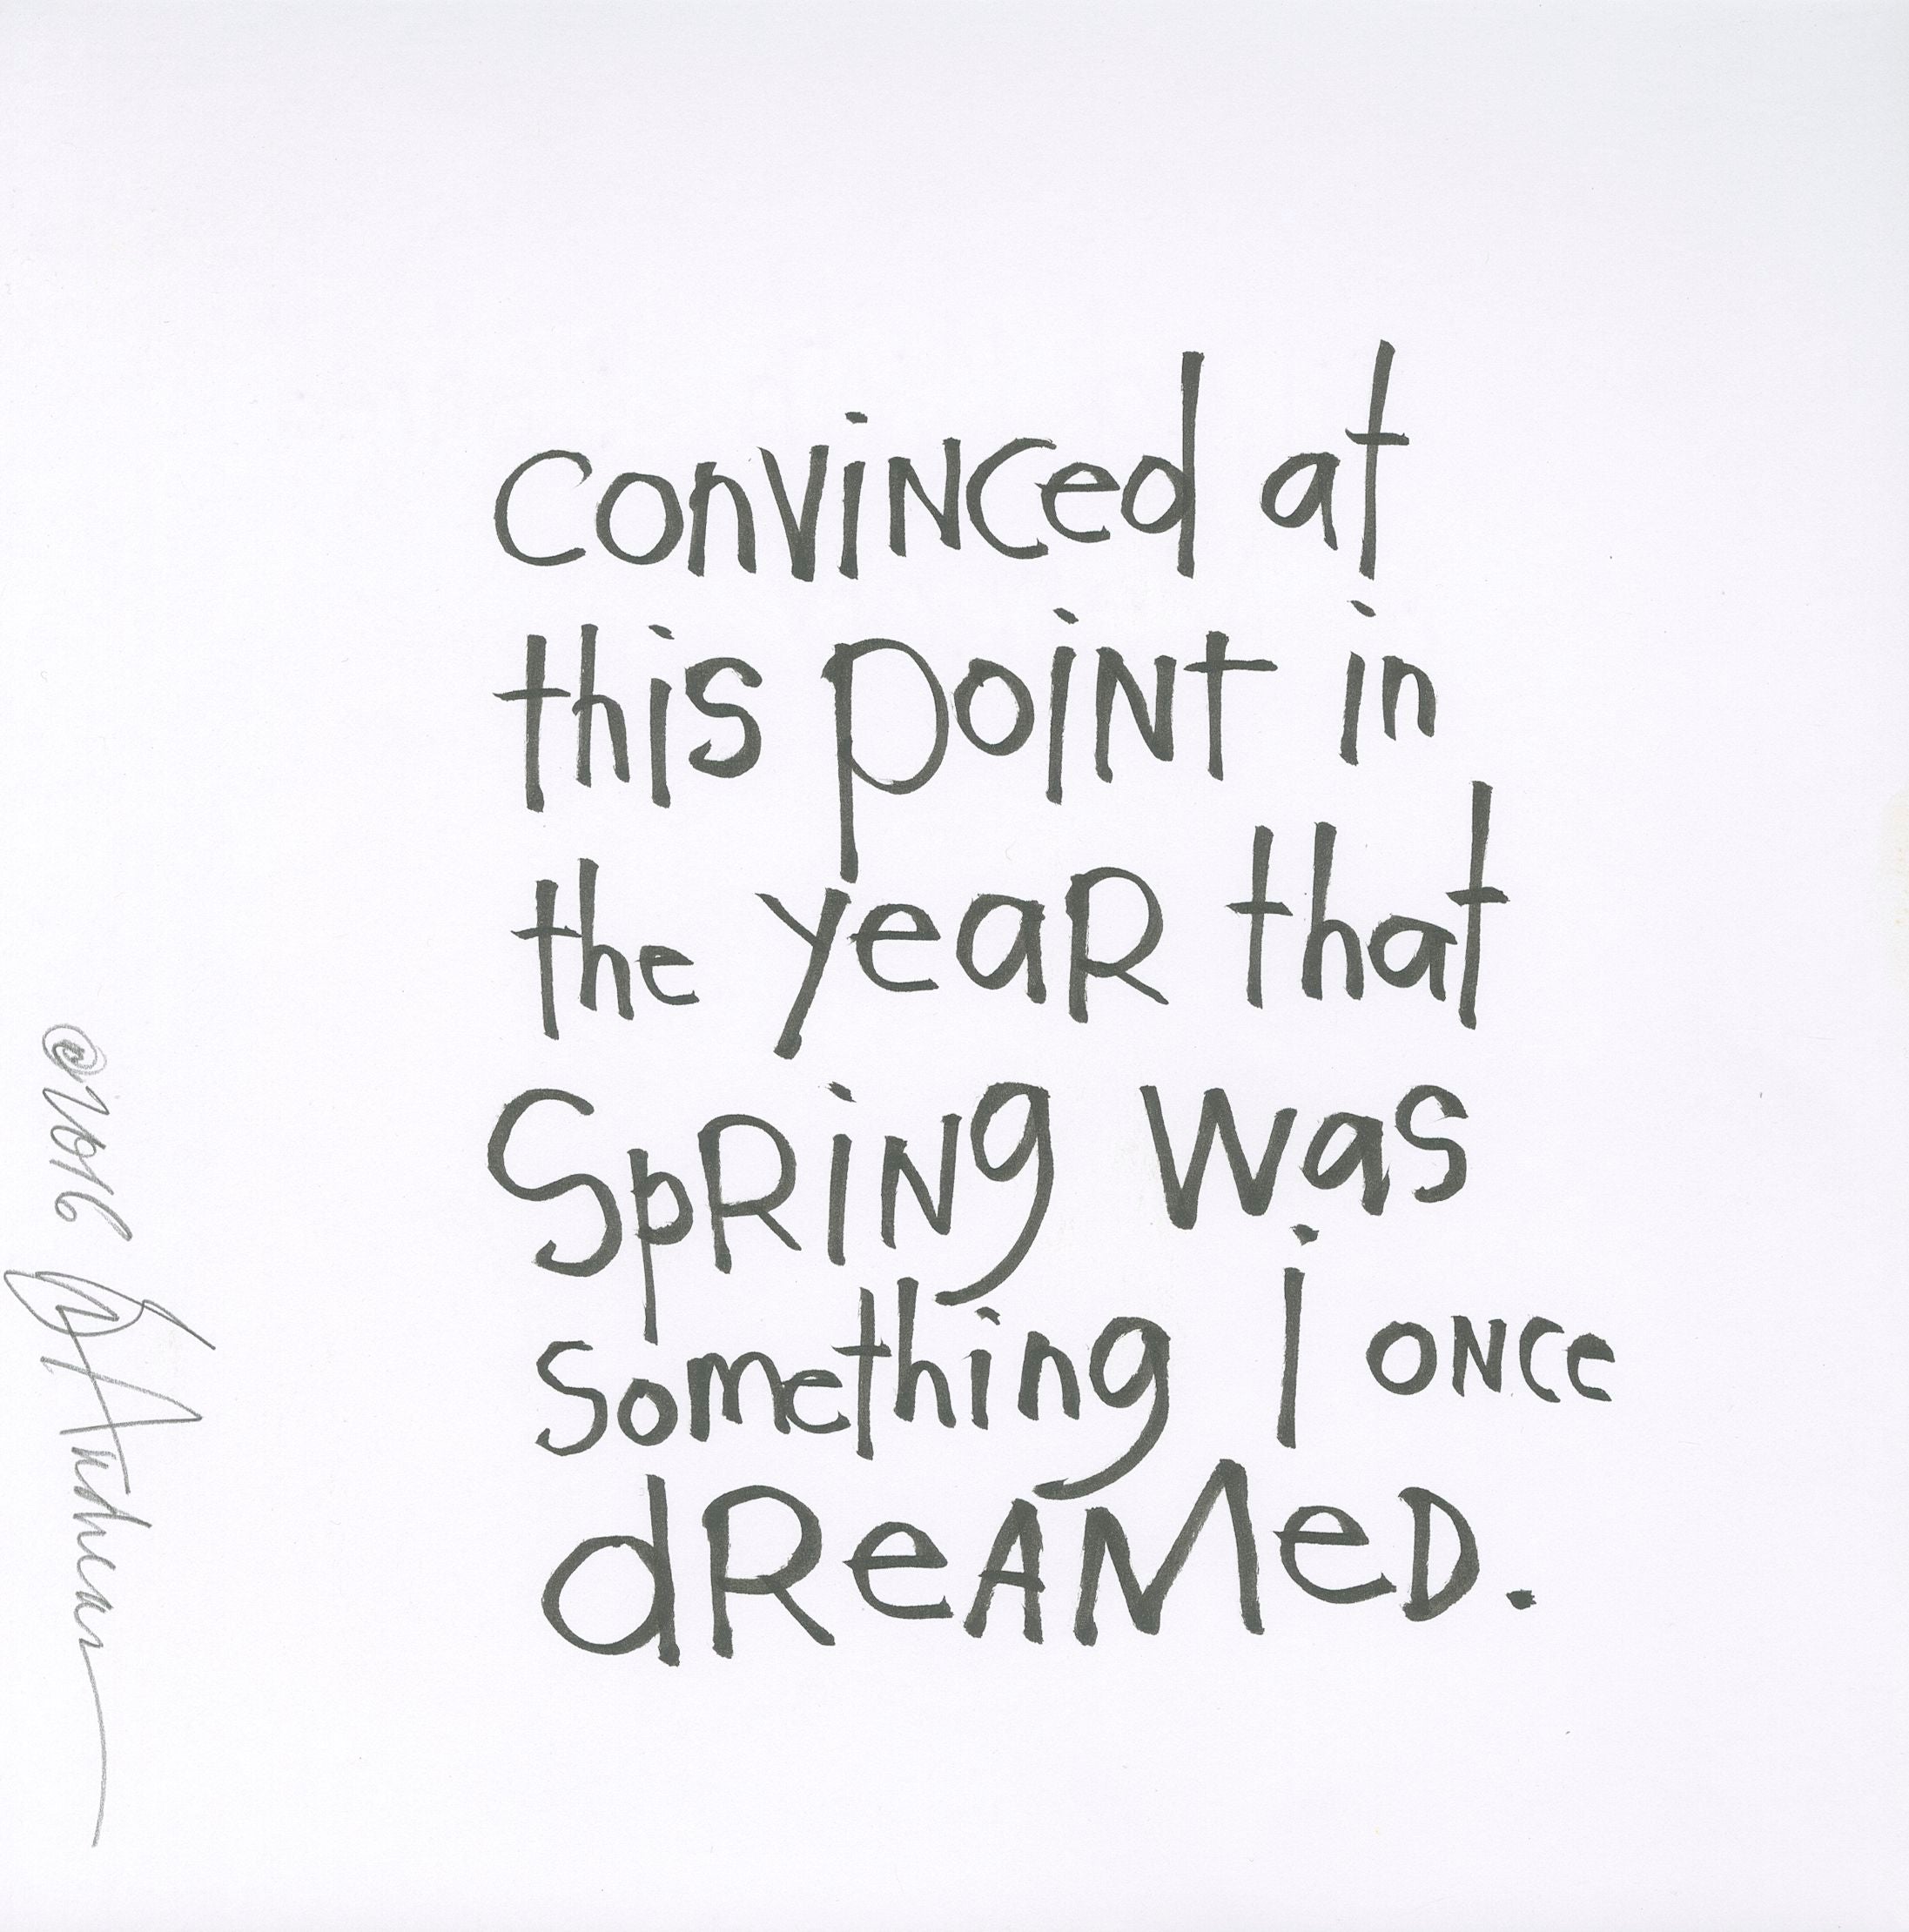 convinced at
this point in
the year that
Spring was
something i once
dreamed.
©2016